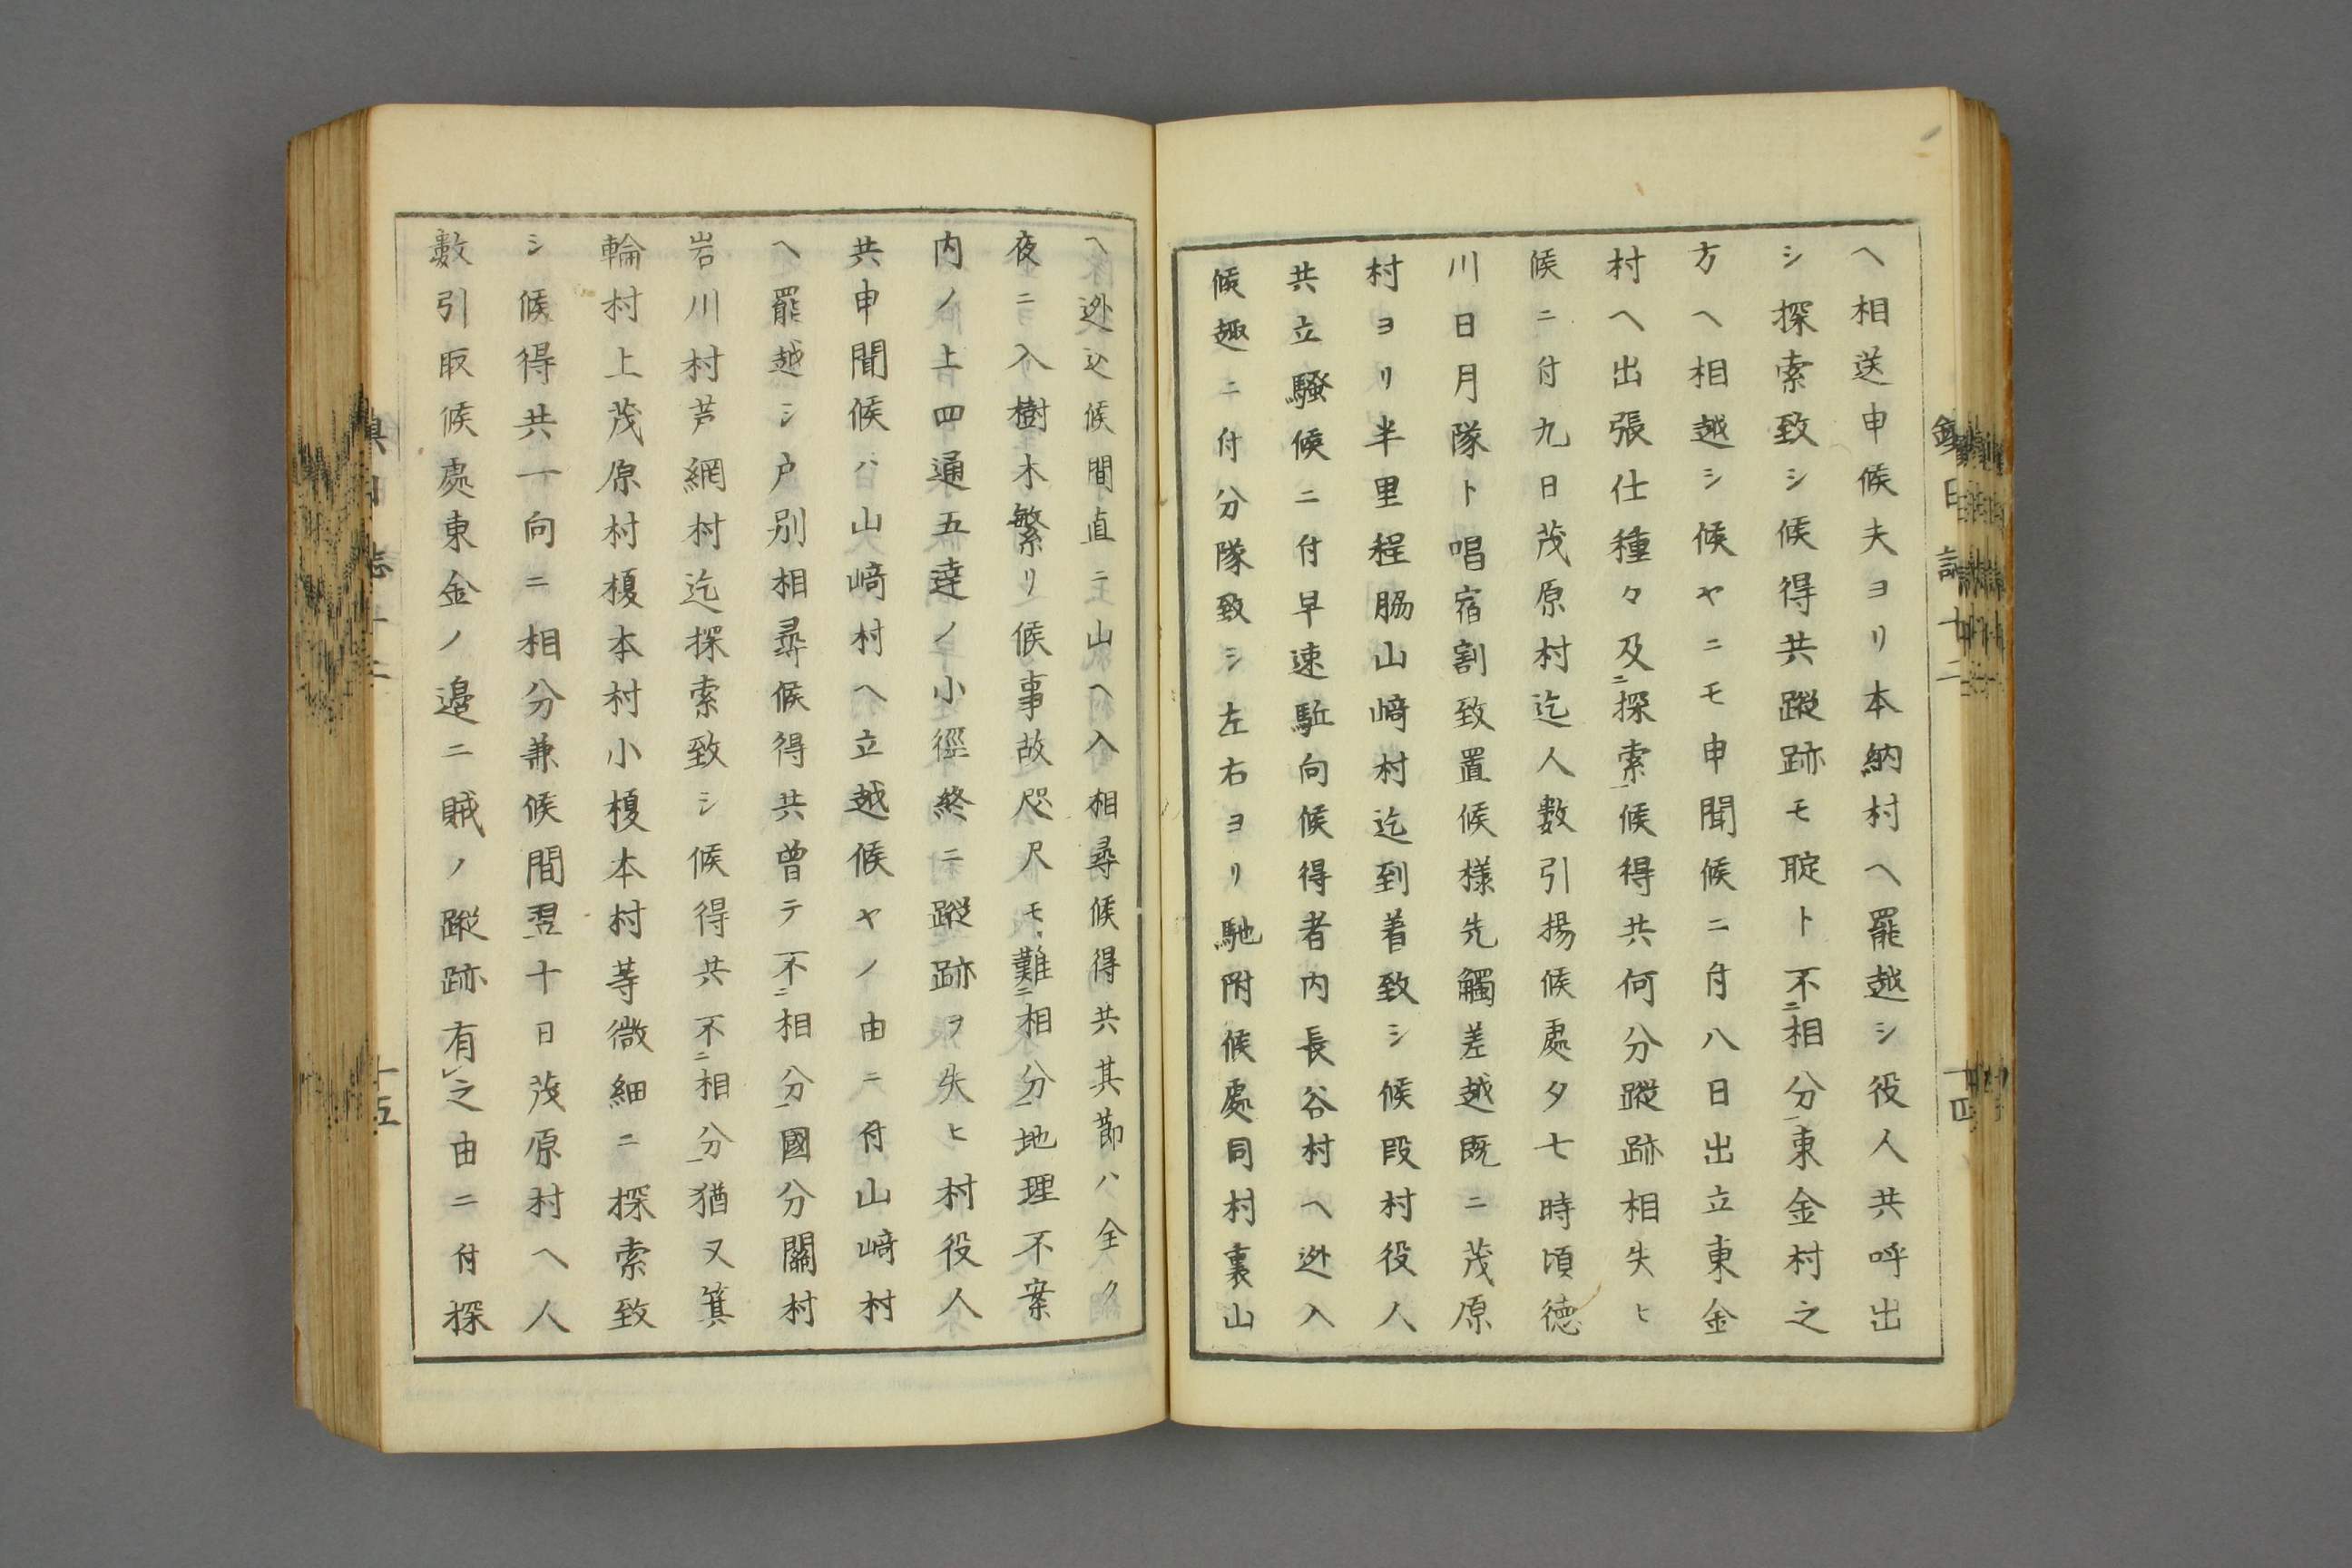 ヘ相送申候夫ヨリ本納村ヘ罷越シ役人共呼出
シ探索致シ候得共蹤跡モ聢ト不ニ相分一東金村之
方ヘ相越シ候ヤニモ申聞候ニ付八日出立東金
村ヘ出張仕種々及ニ探索一候得共何分蹤跡相失ヒ
候ニ付九日茂原村迄人數引揚候處夕七時頃徳
川日月隊ト唱宿割致置候樣先觸差越既ニ茂原
村ヨリ半里程脇山﨑村迄到着致シ候段村役人
共立騷候ニ付早速駈向候得者内長谷村ヘ迯入
候趣ニ付分隊致シ左右ヨリ馳附候處同村裏山
ヘ迯込候間直ニ山ヘ入相尋候得共其節ハ全ク
夜ニ入樹木繁リ候事故咫尺モ難ニ相分一地理不案
内ノ上四通五達ノ小徑終ニ蹤跡ヲ失ヒ村役人
共申聞候ハ山﨑村ヘ立越候ヤノ由ニ付山﨑村
ヘ罷越シ戸別相尋候得共曽テ不ニ相分一國分關村
岩川村芦網村迄探索致シ候得共不ニ相分一猶又箕
輪村上茂原村榎本村小榎本村等微細ニ探索致
シ候得共一向ニ相分兼候間翌十日茂原村ヘ人
數引取候處東金ノ邉ニ賊ノ蹤跡有レ之由ニ付探